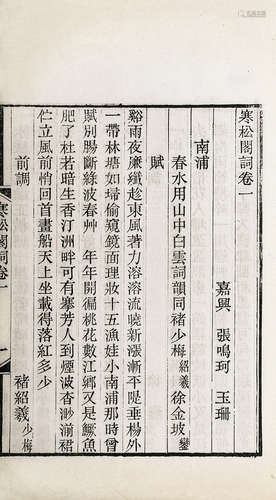 寒松閣詞卷一
嘉興 張鳴珂 玉珊
南浦
春水用山中白雲詞韻同褚少梅紹羲徐金坡鋆
賦
谿雨夜廉纖趁東風著力溶溶流曉新漲漸平隄垂楊外
一帶林塘如掃偷窺鏡面理妝十五漁娃小南浦那時曾
賦別腸斷綠波春草 年年開徧桃花數江鄉又是鱖魚
肥了杜若暗生香汀洲畔可有搴芳人到煙波杳渺前裙
伫立風前悄回首畫船天上坐載得落紅多少
前調 褚紹羲少梅
寒松閣詞卷一
一